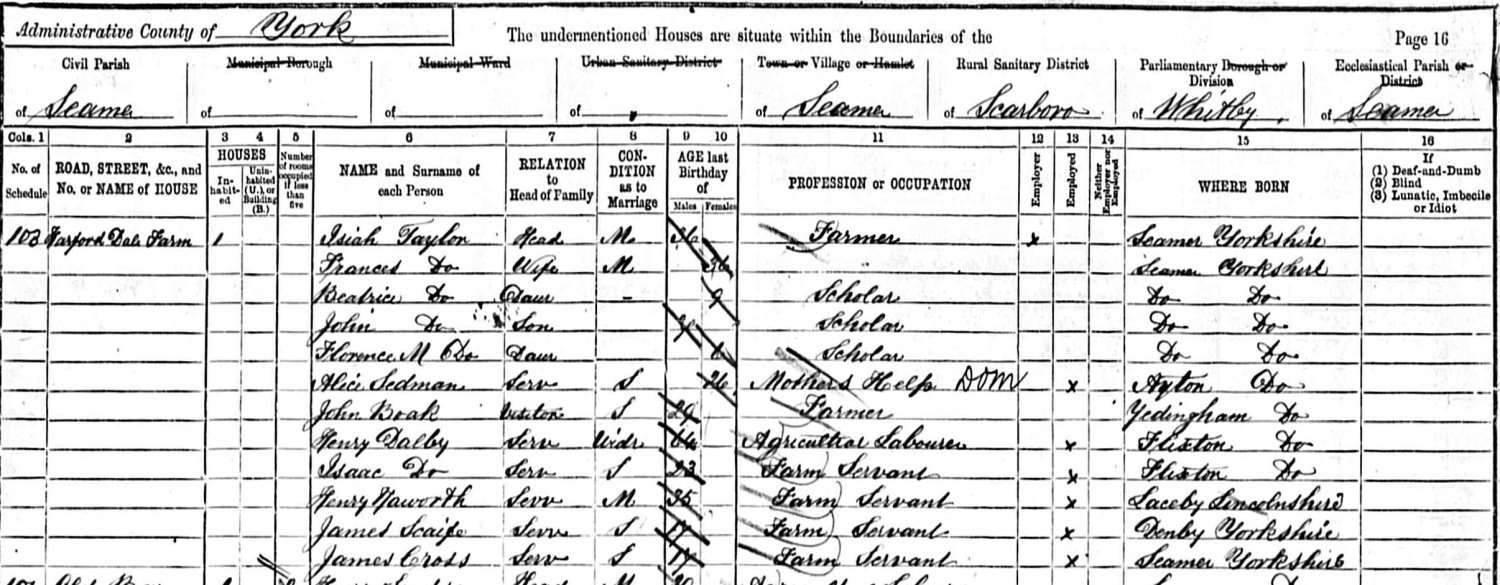 Administrative County of York
The undermentioned Houses are situate within the Boundaries of the
Page 16
Civil Parish Municipal Borough Municipal Ward Urban Sanitary District Town or Village or Hamlet Rural Sanitary District Parliamentary Borough or Division Ecclesiastical Parish or District
of Seamer of of of of Seamer of Scarboro of Whitby of Seamer
Cols. 1 2 3 4 5 6 7 8 9 10 11 12 13 14 15 16
No. of Schedule ROAD, STREET, &c., and No. or NAME of HOUSE HOUSES Inhabited Uninhabited (U.), or Building (B.) Number of rooms occupied if less than five NAME and Surname of each Person RELATION to Head of Family CONDITION as to Marriage AGE last Birthday of Males Females PROFESSION or OCCUPATION Employer Employed Neither Employer nor Employed WHERE BORN If (1) Deaf-and-Dumb (2) Blind (3) Lunatic, Imbecile or Idiot
103 Harford Dale Farm 1 Isiah Taylor Head M 36 Farmer x Seamer Yorkshire
Frances Do Wife M 36 Seamer Yorkshire
Beatrice Do Daur - 9 Scholar Do Do
John Do Son Scholar Do Do
Florence M Do Daur 6 Scholar Do Do
Alice Sedman Serv S 26 Mothers Help DOM x Ayton Do
John Boak Visitor S 29 Farmer Yedingham Do
Henry Dalby Serv Widr 64 Agricultrar Labourer x Flixton Do
Isaac Do Serv S 23 Farm Servant x Flixton Do
Henry Haworth Serv M 35 Farm Servant x Laceby Lincolnshire
James Scaife Serv S 17 Farm Servant x Denby Yorkshire
James Cross Serv S 17 Farm Servant x Seamer Yorkshire
Head M